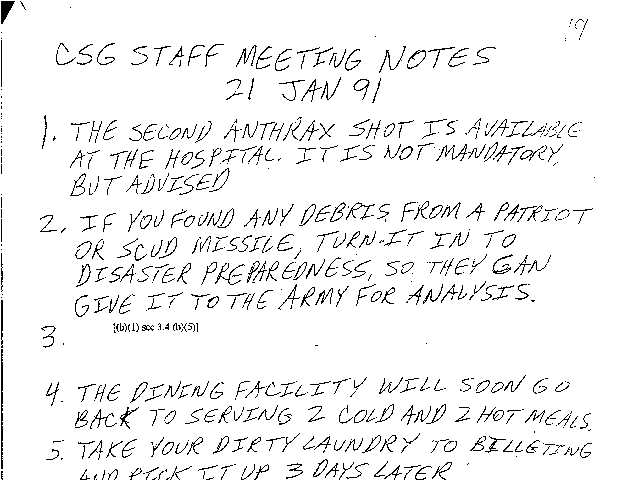 19
CSG STAFF MEETING NOTES
21 JAN 91
1. THE SECOND ANTHRAX SHOT IS AVAILABLE
AT THE HOSPITAL. IT IS NOT MANDATORY,
BUT ADVISED
2. IF YOU FOUND ANY DEBRIS FROM A PATRIOT
OR SCUD MISSILE, TURN IT IN TO
DISASTER PREPAREDNESS, SO THEY CAN
GIVE IT TO THE ARMY FOR ANALYSIS.
3. [(b)(1) sec 3.4 (b)(5)]
4. THE DINING FACILITY WILL SOON GO
BACK TO SERVING 2 COLD AND 2 HOT MEALS.
5. TAKE YOUR DIRTY LAUNDRY TO BILLETING
AND PICK IT UP 3 DAYS LATER